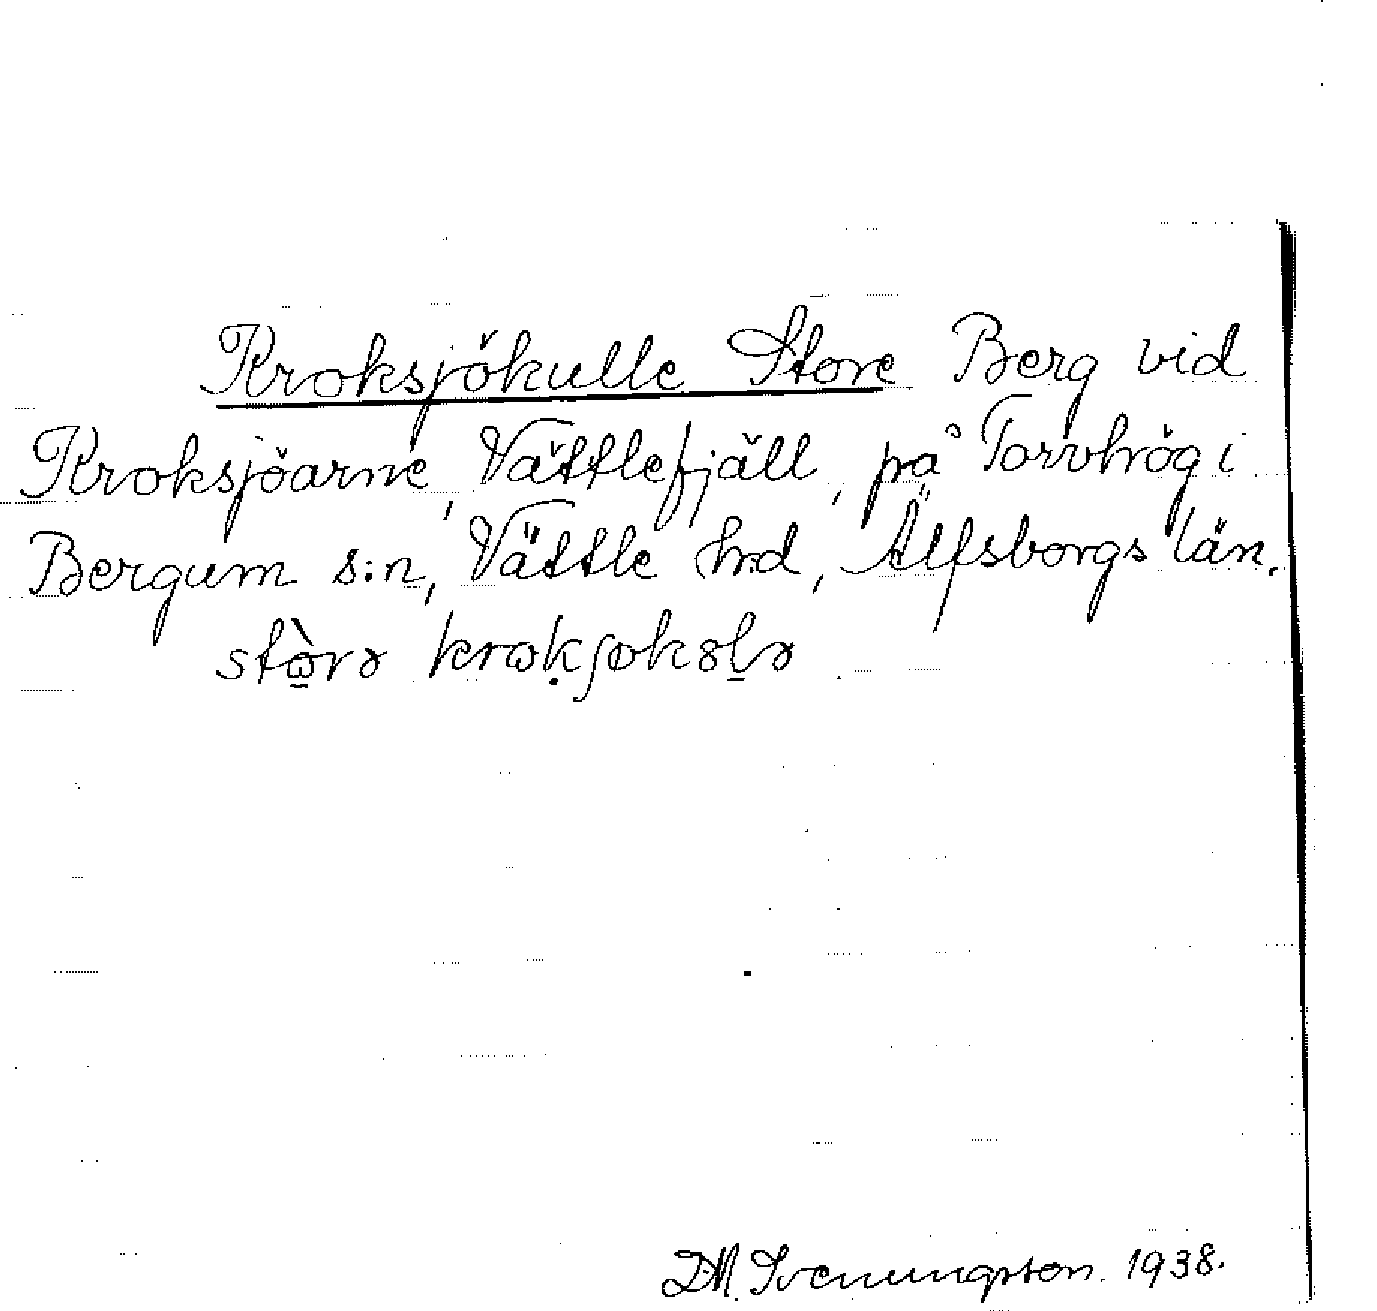 Kroksjökulle Store Berg vid
Kroksjöarne, Vättlefjäll, på Torvhög i
Bergum s:n, Vättle h:d, Älfsborgs län.
stòrə krokʃøkələ
D.M. Svenungsson. 1938.